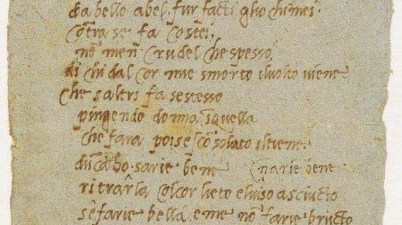 da bello a bel fur facti gli ochi mei
cotra se fa costei
no men crudel che spesso
di chi dal cor mie smorto il uolto viene
che saltri fa se stesso
pingendo donna i quella
che fara poi se scosolato il tene
duca bo sarie bene
narie bene
ritrarla col cor lieto el uiso asciucto
se farie bella e me no farie bructo